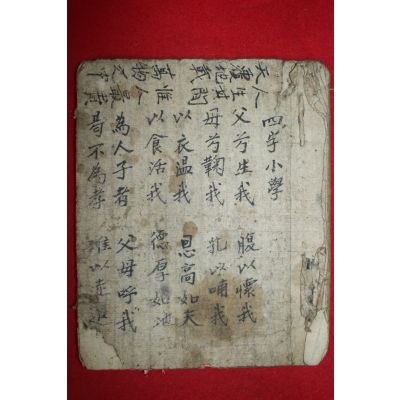 天覆地載萬物之中
人生其間惟人最貴
四字小學
父兮生我 腹以懷我
母兮鞠我 乳以哺我
以衣温我 恩高如天
以食活我 德厚如地
為人子者 父母呼我
曷不為孝 唯以